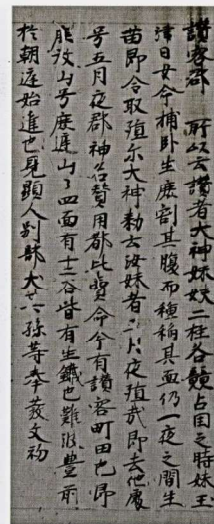 讃容郡 所以云讃者大神妹妋二柱各競占国之時妹玉
津日女命捕臥生鹿割其腹而種稲其血仍一夜之間生
苗即令取殖尓大神勅云汝妹者五月夜殖哉即去他處
号五月夜郡神名賛用都比賣命今有讃容町田也即
鹿放山号鹿庭山々四面有十二谷皆有生鐵也難波豊前
於朝庭始進也見顕人別部犬其孫等奉發之初